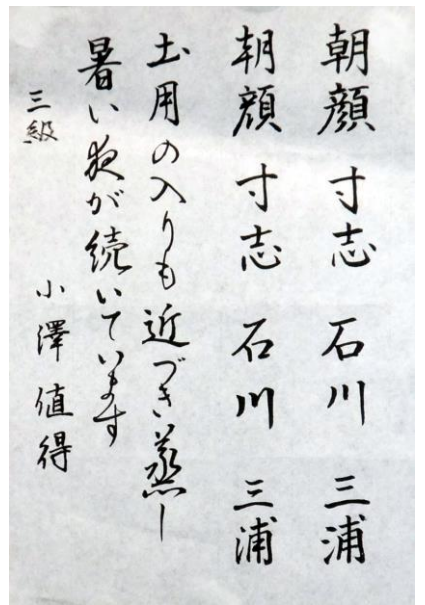 朝顔 寸志 石川 三浦
朝顔 寸志 石川 三浦
土用の入りも近づき蒸し
暑い夜が続いています
三級 小澤値得